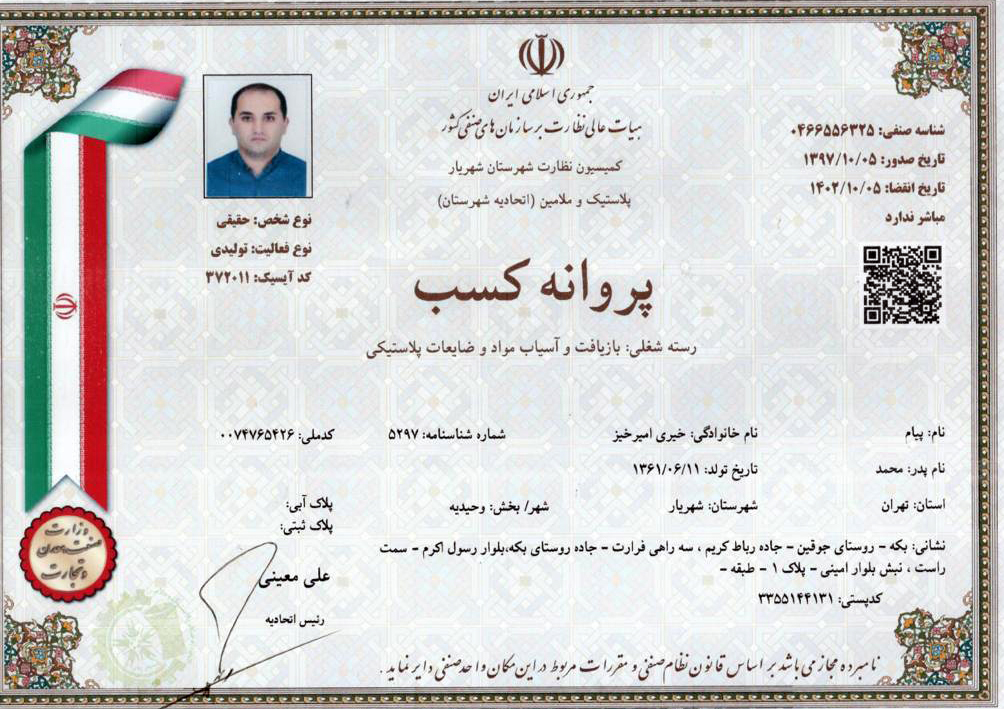 جمهوری اسلامی ایران
هیات عالی نظارت بر سازمان های صنفی کشور
کمیسیون نظارت شهرستان شهریار
پلاستیک و ملامین (اتحادیه شهرستان)
شناسه صنفی: ۰۴۶۶۵۵۶۳۲۵
تاریخ صدور: ۱۳۹۷/۱۰/۰۵
تاریخ انقضا: ۱۴۰۲/۱۰/۰۵
مباشر ندارد
نوع شخص: حقیقی
نوع فعالیت: تولیدی
کد آیسیک: ۳۷۲۰۱۱
پروانه کسب
رسته شغلی: بازیافت و آسیاب مواد و ضایعات پلاستیکی
نام: پیام نام خانوادگی: خیری امیرخیز شماره شناسنامه: ۵۲۹۷ کدملی: ۰۰۷۴۷۶۵۴۲۶
نام پدر: محمد تاریخ تولد: ۱۳۶۱/۰۶/۱۱
استان: تهران شهرستان: شهریار شهر/ بخش: وحیدیه پلاک آبی:
پلاک ثبتی:
نشانی: بکه - روستای جوقین - جاده رباط کریم ، سه راهی فرارت - جاده روستای بکه،بلوار رسول اکرم - سمت
راست ، نبش بلوار امینی - پلاک ۱ - طبقه -
کدپستی: ۳۳۵۵۱۴۴۱۳۱
علی معینی
رئیس اتحادیه
وزارت
صنعت معدن
و تجارت
نامبرده مجاز می باشد بر اساس قانون نظام صنفی و مقررات مربوط در این مکان واحد صنفی دایر نماید .